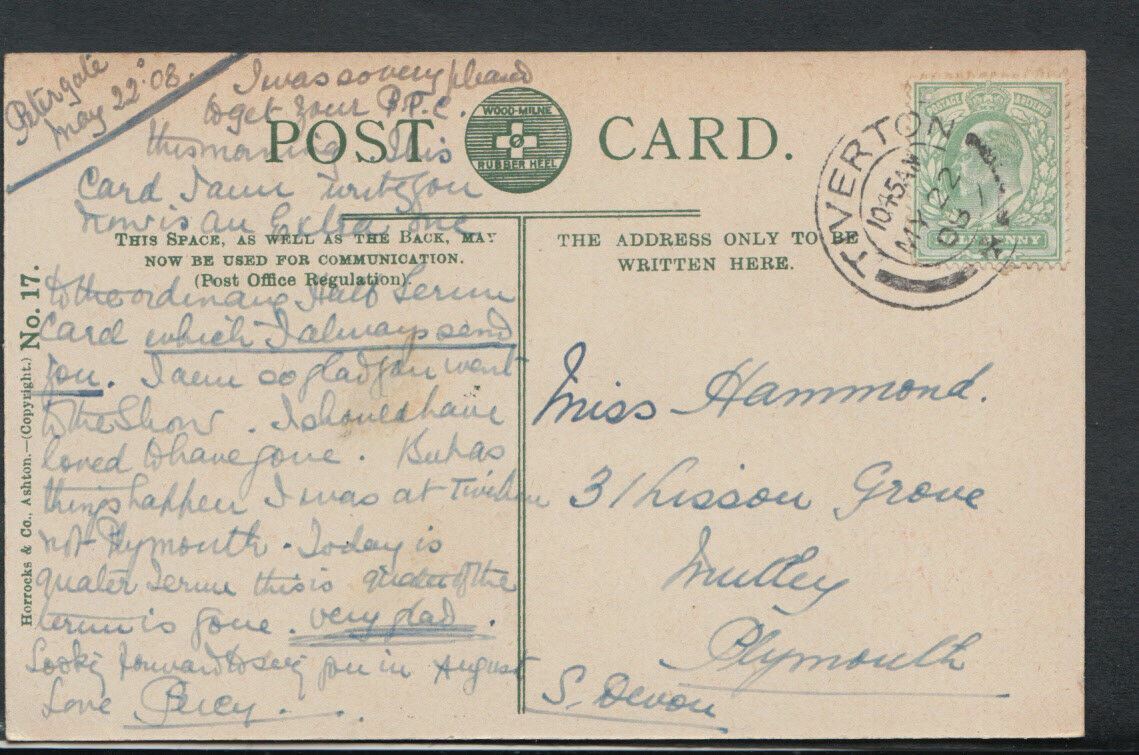 Petergate
May 22° 08.
I was so very pleased
to get your P.P.C.
this morning. This
Card I am writg you
now is an Extra one
to the ordinary Half Term
Card which I always send
you. I am so glad you went
to the Show. I should have
loved to have gone. But as
things happen I was at Tiverton
not Plymouth. Today is
quater Term this is quater of the
term is gone. very glad.
Lookg forward to seeig you in August
Love Percy.
POST CARD.
WOOD-MILNE
RUBBER HEEL
THIS SPACE, AS WELL AS THE BACK, MAY
NOW BE USED FOR COMMUNICATION.
(Post Office Regulation).
THE ADDRESS ONLY TO BE
WRITTEN HERE.
Horrocks & Co., Ashton.—(Copyright.) No. 17.
POSTAGE & REVENUE
HALFPENNY
TIVERTON
10 45 AM
MY 22
08
Miss Hammond.
31 Lisson Grove
Mutley
Plymouth
S. Devon